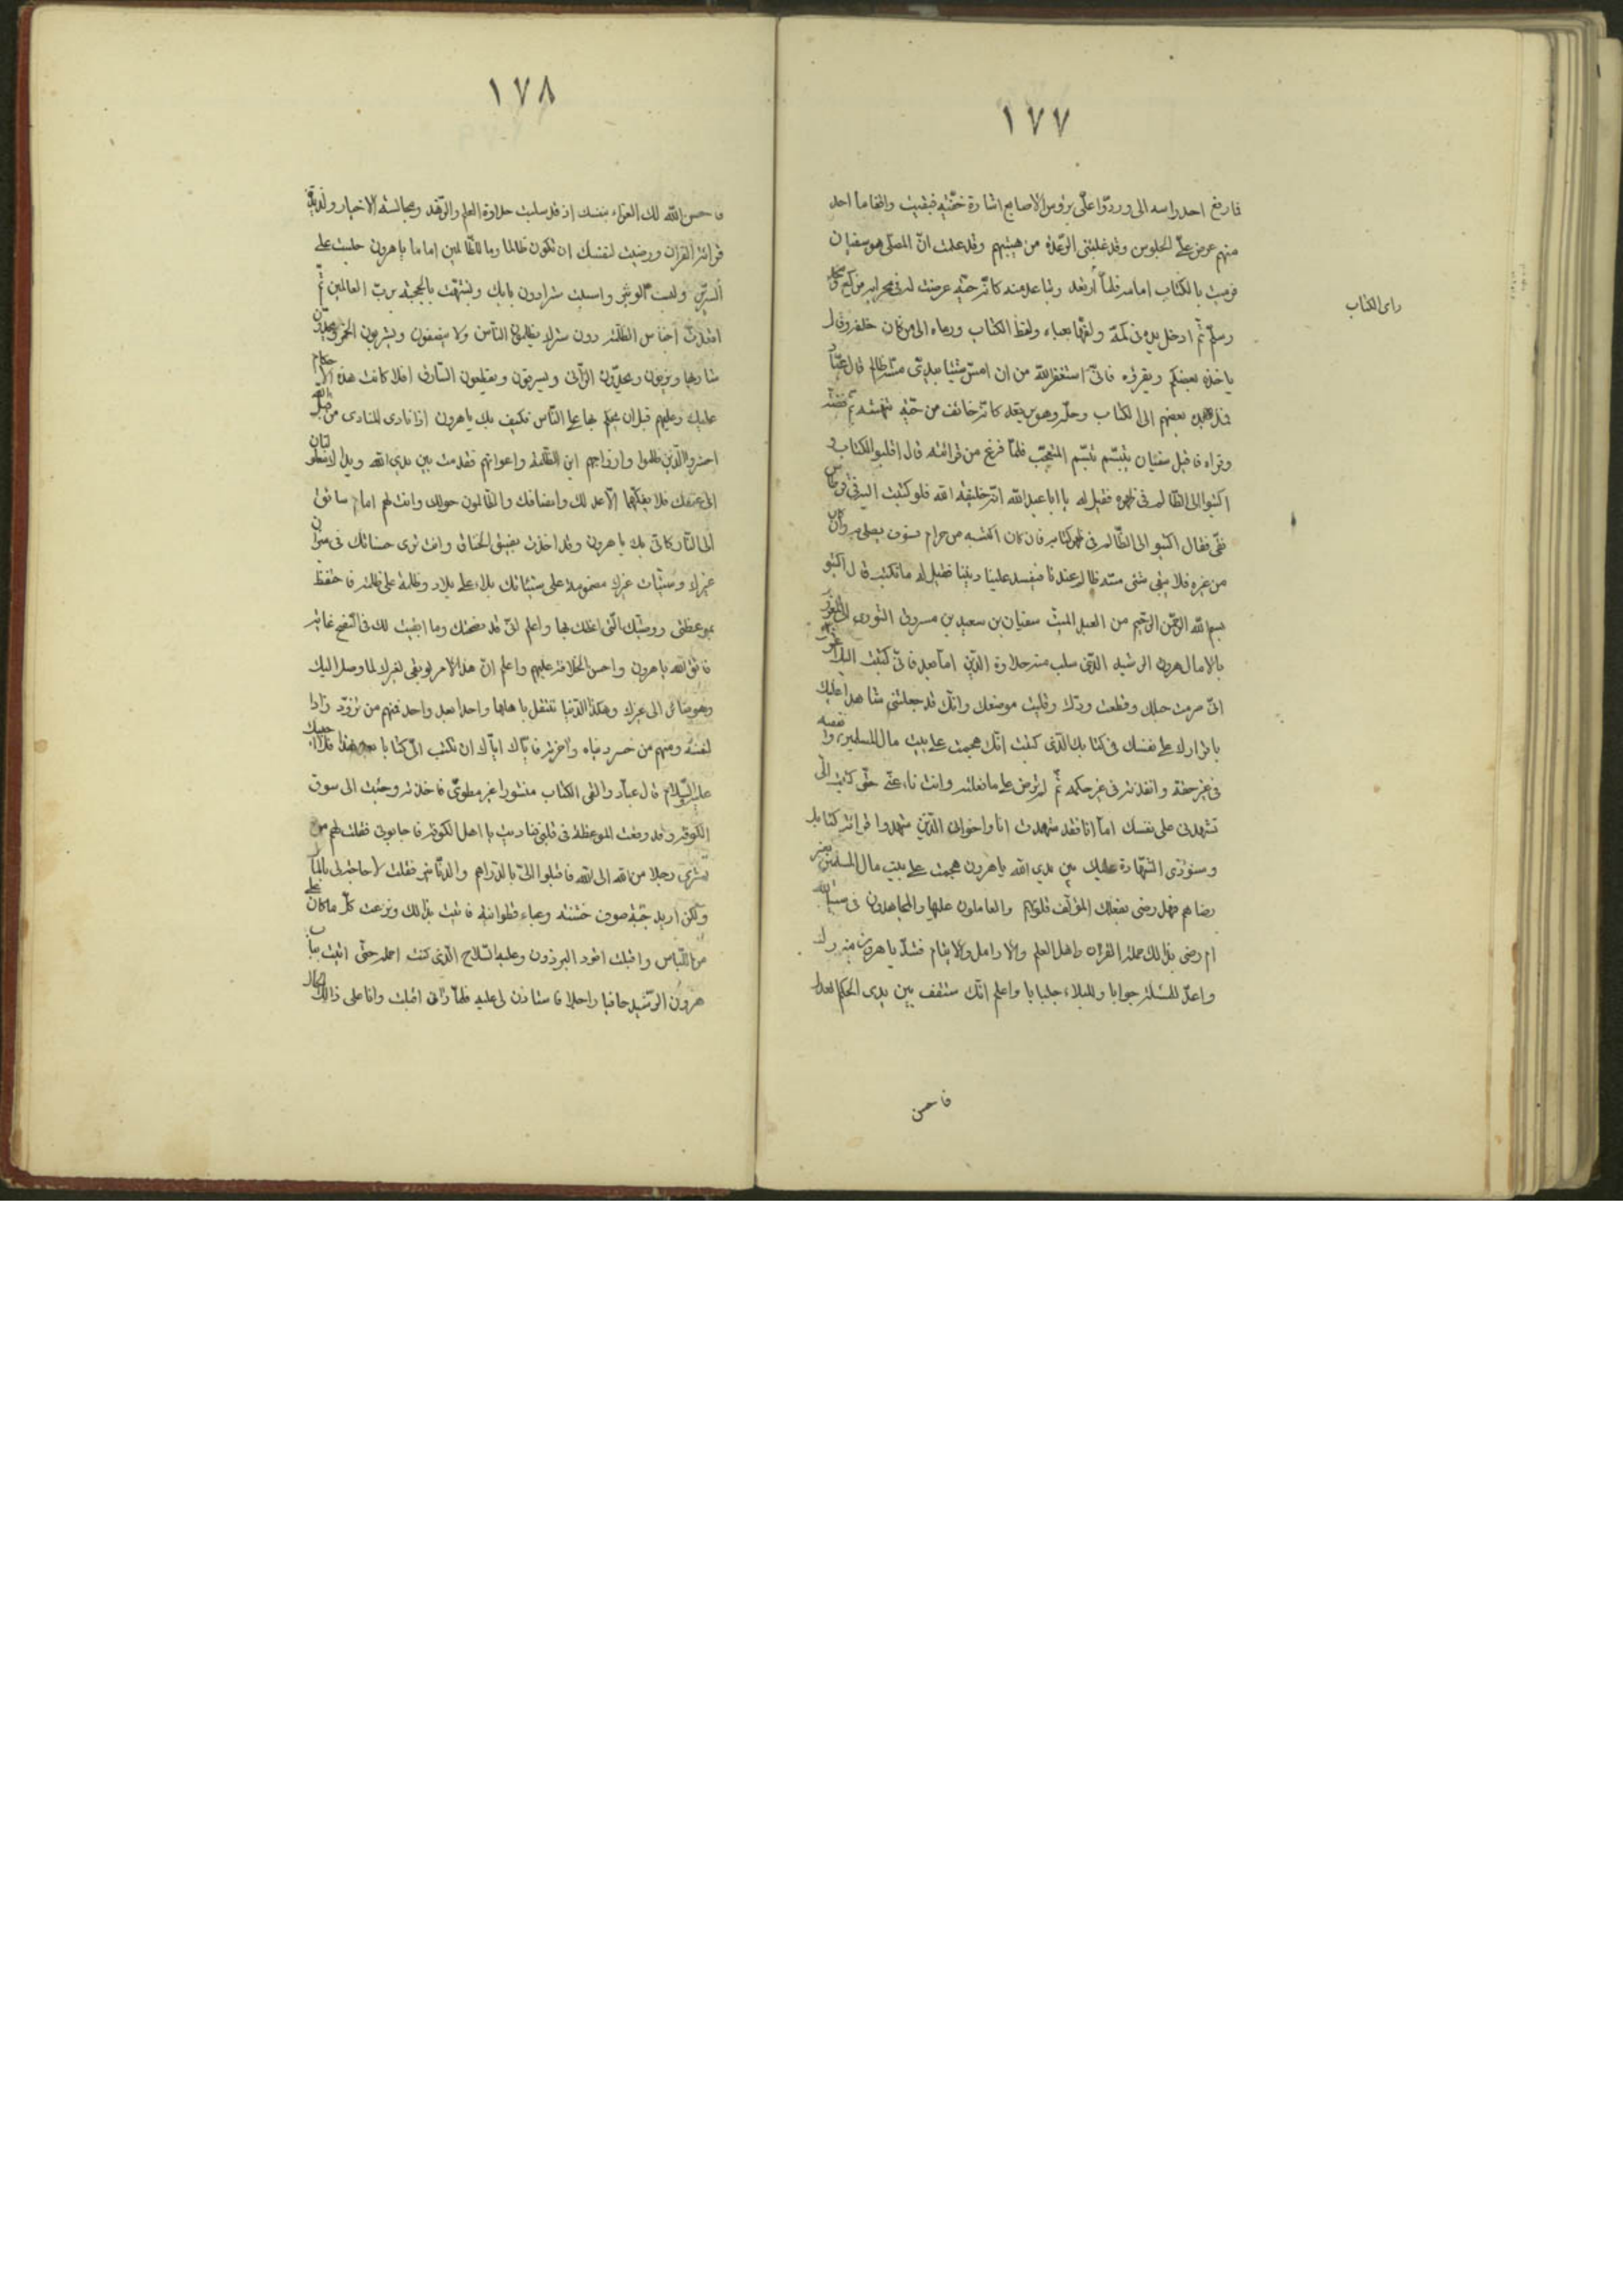 ١٧٧
فارفع احد راسه الى وردّوا علىّ برؤس الاصابع اشارة خفية فبقيت واقفا ما احد
منهم عرض علىّ الجلوس وقد غلبنى الرعدة من هيبتهم وقد علمت انّ المصلّى هو سفيان
فرميت بالكتاب امامه فلمّا ارتعد وتباعد منه كانّه حيّة عرضت له فى محرابه فركع
راى الكتاب
وسلّم ثم ادخل يده فى كمّه ولفّها بعباء ولقط الكتاب ورماه الى من كان خلفه وقال
ياخذه بعضكم ويقرؤه فانّى استغفر الله من ان امسّ شيئا بيدى مسّه ظالم قال عبّاد
بعضهم الى الكتاب وحلّه وهو يرتعد كانّه خائف من حيّة تنهشه ثم فضّه
وقراه فاقبل سفيان يتبسّم تبسّم المتعجّب فلمّا فرغ من قرائته قال اقلبوا الكتاب و
اكتبوا الى الظالم فى ظهره فقيل له يا ابا عبد الله انّه خليفة الله فلو كتبت اليه فى قرطاس
نقى فقال اكتبوا الى الظالم فى ظهر كتابه فان كان اكتسبه من حرام فسوف يصلى به وان كان
من غيره فلا يبقى شئ مسّه ظالم عندنا فيفسد علينا ديننا فقيل له ما نكتب قال اكتبو
بسم الله الرحمن الرحيم من العبد الميت سفيان بن سعيد بن مسروق الثورى الى العبد المغرور
بالامال هرون الرشيد الذى سلب منه حلاوة الدين اما بعد فانّى كتبت اليك
انّى صرمت حبلك وقطعت ودّك وقليت موضعك وانّك قد جعلتنى شاهدا عليك
باقرارك على نفسك فى كتابك الذى كتبت انّك هجمت على بيت مال المسلمين وانفقته
فى غير حقّه وانفذته فى غير حكمه ثمّ لم ترض على ما فعلته وانت ناء عنّى حتّى كتبت الىّ
تشهدنى على نفسك امّا انا فقد شهدت انا واخوانى الذين شهدوا قرائة كتابك
وسنؤدّى الشهادة عليك بين يدى الله ياهرون هجمت على بيت مال المسلمين بغير
رضاهم فهل رضى بفعلك المؤلّفة قلوبهم والعاملون عليها والمجاهدون فى سبيل الله
ام رضى بذلك حملة القران واهل العلم والارامل والايتام فشدّ ياهرون ميزرك
واعدّ للمسئلة جوابا وللبلاء جلبابا واعلم انّك ستقف بين يدى الحكم العدل
فاحسن
١٧٨
فاحسن الله لك العزاء بنفسك اذ قد سلبت حلاوة العلم والزهد ومجالسة الاخيار ولذّة
قرائة القران ورضيت لنفسك ان تكون ظالما وللظالمين اماما ياهرون جلست على
السرير ولبست الوثير واسبلت سترا دون بابك وتشبّهت بالحجبة بربّ العالمين ثمّ
اقعدت اجنادك الظلمة دون سترك يظلمون الناس ولا ينصفون ويشربون الخمر ويحدّون
شاربها ويزنون ويحدّون الزّانى ويسرقون ويقطعون السّارق افلا كانت هذه الاحكام
عليك وعليهم قبل ان يحكم بها على النّاس فكيف بك ياهرون اذا نادى المنادى من قبل الله
احشروا الذين ظلموا وازواجهم اين الظلمة واعوانهم فقدمت بين يدى الله ويداك مغلولتان
الى عنقك فلا يفكّهما الّا عدلك وانصافك والظالمون حولك وانت لهم امام سائق
الى النّار كانّى بك ياهرون وقد اخذت بضيق الخناق وانت ترى حسناتك فى ميزان
غيرك وسيّئات غيرك مضمومة على سيّئاتك بلاء على بلاء وظلمة على ظلمة فاحتفظ
بموعظتى ووصيّتك الّتى اعظك بها واعلم انّى قد نصحتك وما ابقيت لك فى النّصح غاية
فاتّق الله ياهرون واحسن الخلافة عليهم واعلم انّ هذا الامر لو بقى لغيرك لما وصل اليك
وهو صائر الى غيرك وهكذا الدّنيا تنتقل باهلها واحدا بعد واحد فمنهم من تزوّد زادا
لنفسه ومنهم من خسر دنياه واخرته فايّاك ايّاك ان تكتب الىّ كتابا بعد هذا فلا اجيبك
عليه والسّلام قال عبّاد والقى الكتاب منشورا غير مطوىّ فاخذته وجئت الى سوق
الكوفة وقد وقعت الموعظة فى قلبى فناديت يا اهل الكوفة فاجابونى فقلت لهم من
يشترى رجلا من الله الى الله فاقبلوا الىّ بالدّراهم والدّنانير فقلت لا حاجة لى بالمال
ولكن اريد جبّة صوف خشنة وعباء قطوانيّة فاتيت بذلك ونزعت كلّ ما كان علىّ
من اللّباس واقبلت اقود البرذون وعليه السّلاح الّذى كنت احمله حتّى اتيت باب
هرون الرّشيد حافيا راجلا فاستاذن لى عليه فلمّا رآنى اقبلت وانا على ذلك الحال